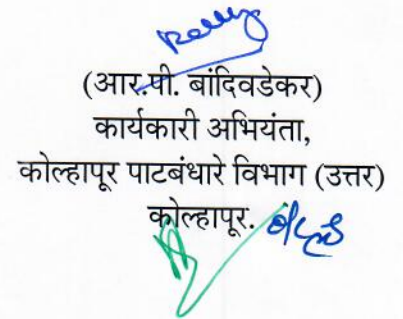 (आर.पी. बांदिवडेकर)
कार्यकारी अभियंता,
कोल्हापूर पाटबंधारे विभाग (उत्तर)
कोल्हापूर.